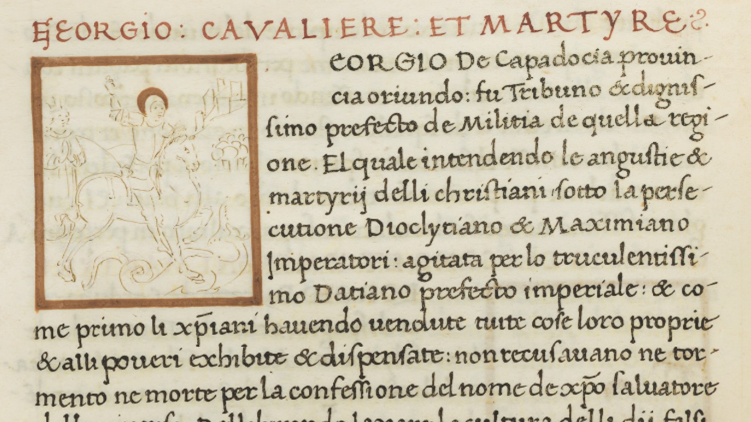 GEORGIO: CAVALIERE: ET MARTYRE
EORGIO De Capadocia provin-
cia oriundo: fu Tribuno & dignis-
simo prefecto de Militia de quella regi-
one. El quale intendendo le angustie &
martyrij delli christiani sotto la perse-
cutione Dioclytiano & Maximiano
Imperatori: agitata per lo truculentissi-
mo Datiano prefecto imperiale: & co-
me primo li xp̄iani havendo vendute tutte cose loro proprie
& alli poveri exhibite & dispensate: non recusavano ne tor-
mento ne morte per la confessione del nome de xp̄o salvatore
la cultura delli dij falsi